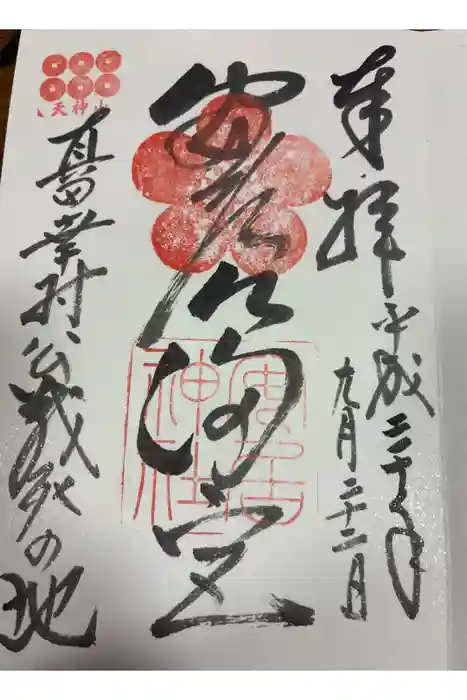 奉拝
平成二十八年
九月二十二日
安居天満宮
安居
神社
天神山
真田幸村公戦死の地